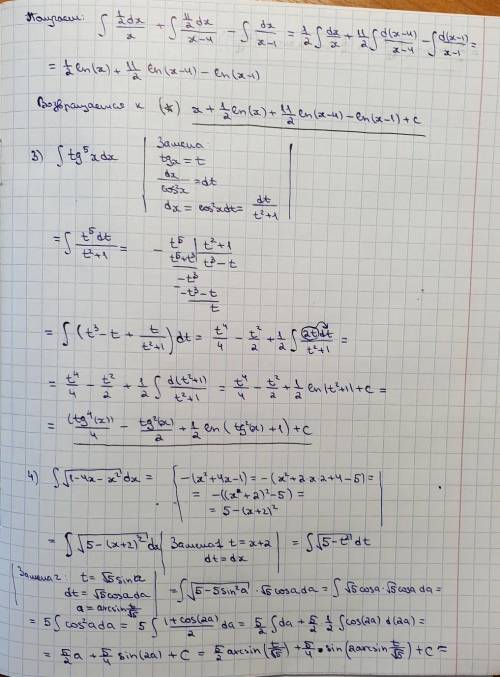 Получаем: ∫ (1/2 dx)/x + ∫ (11/2 dx)/(x-4) - ∫ dx/(x-1) = 1/2 ∫ dx/x + 11/2 ∫ d(x-4)/(x-4) - ∫ d(x-1)/(x-1) =
= 1/2 ln(x) + 11/2 ln(x-4) - ln(x-1)
Возвращаемся к (*) x + 1/2 ln(x) + 11/2 ln(x-4) - ln(x-1) + C
3) ∫ tg⁵x dx
Замена:
tgx = t
dx/cos²x = dt
dx = cos²x dt = dt/(t²+1)
= ∫ t⁵dt/(t²+1) =
- t⁵ | t²+1
t⁵+t³ | t³-t
-t³
- -t³-t
t
= ∫ (t³ - t + t/(t²+1)) dt = t⁴/4 - t²/2 + 1/2 ∫ 2t dt/(t²+1) =
= t⁴/4 - t²/2 + 1/2 ∫ d(t²+1)/(t²+1) = t⁴/4 - t²/2 + 1/2 ln|t²+1| + C =
= (tg⁴(x))/4 - tg²(x)/2 + 1/2 ln(tg²(x)+1) + C
4) ∫ √(1-4x-x²) dx =
-(x²+4x-1) = -(x²+2x2+4-5) =
= -((x+2)²-5) =
= 5-(x+2)²
= ∫ √(5-(x+2)²) dx | Замена 1 t = x+2 | = ∫ √(5-t²) dt
dt = dx
Замена 2: t = √5 sin a
dt = √5 cos a da
a = arcsin t/√5
= ∫ √(5-5sin²a) · √5 cos a da = ∫ √5 cos a · √5 cos a da =
= 5 ∫ cos²a da = 5 ∫ (1+cos(2a))/2 da = 5/2 ∫ da + 5/2 · 1/2 ∫ cos(2a) d(2a) =
= 5/2 a + 5/4 sin(2a) + C = 5/2 arcsin(t/√5) + 5/4 · sin(2arcsin t/√5) + C =